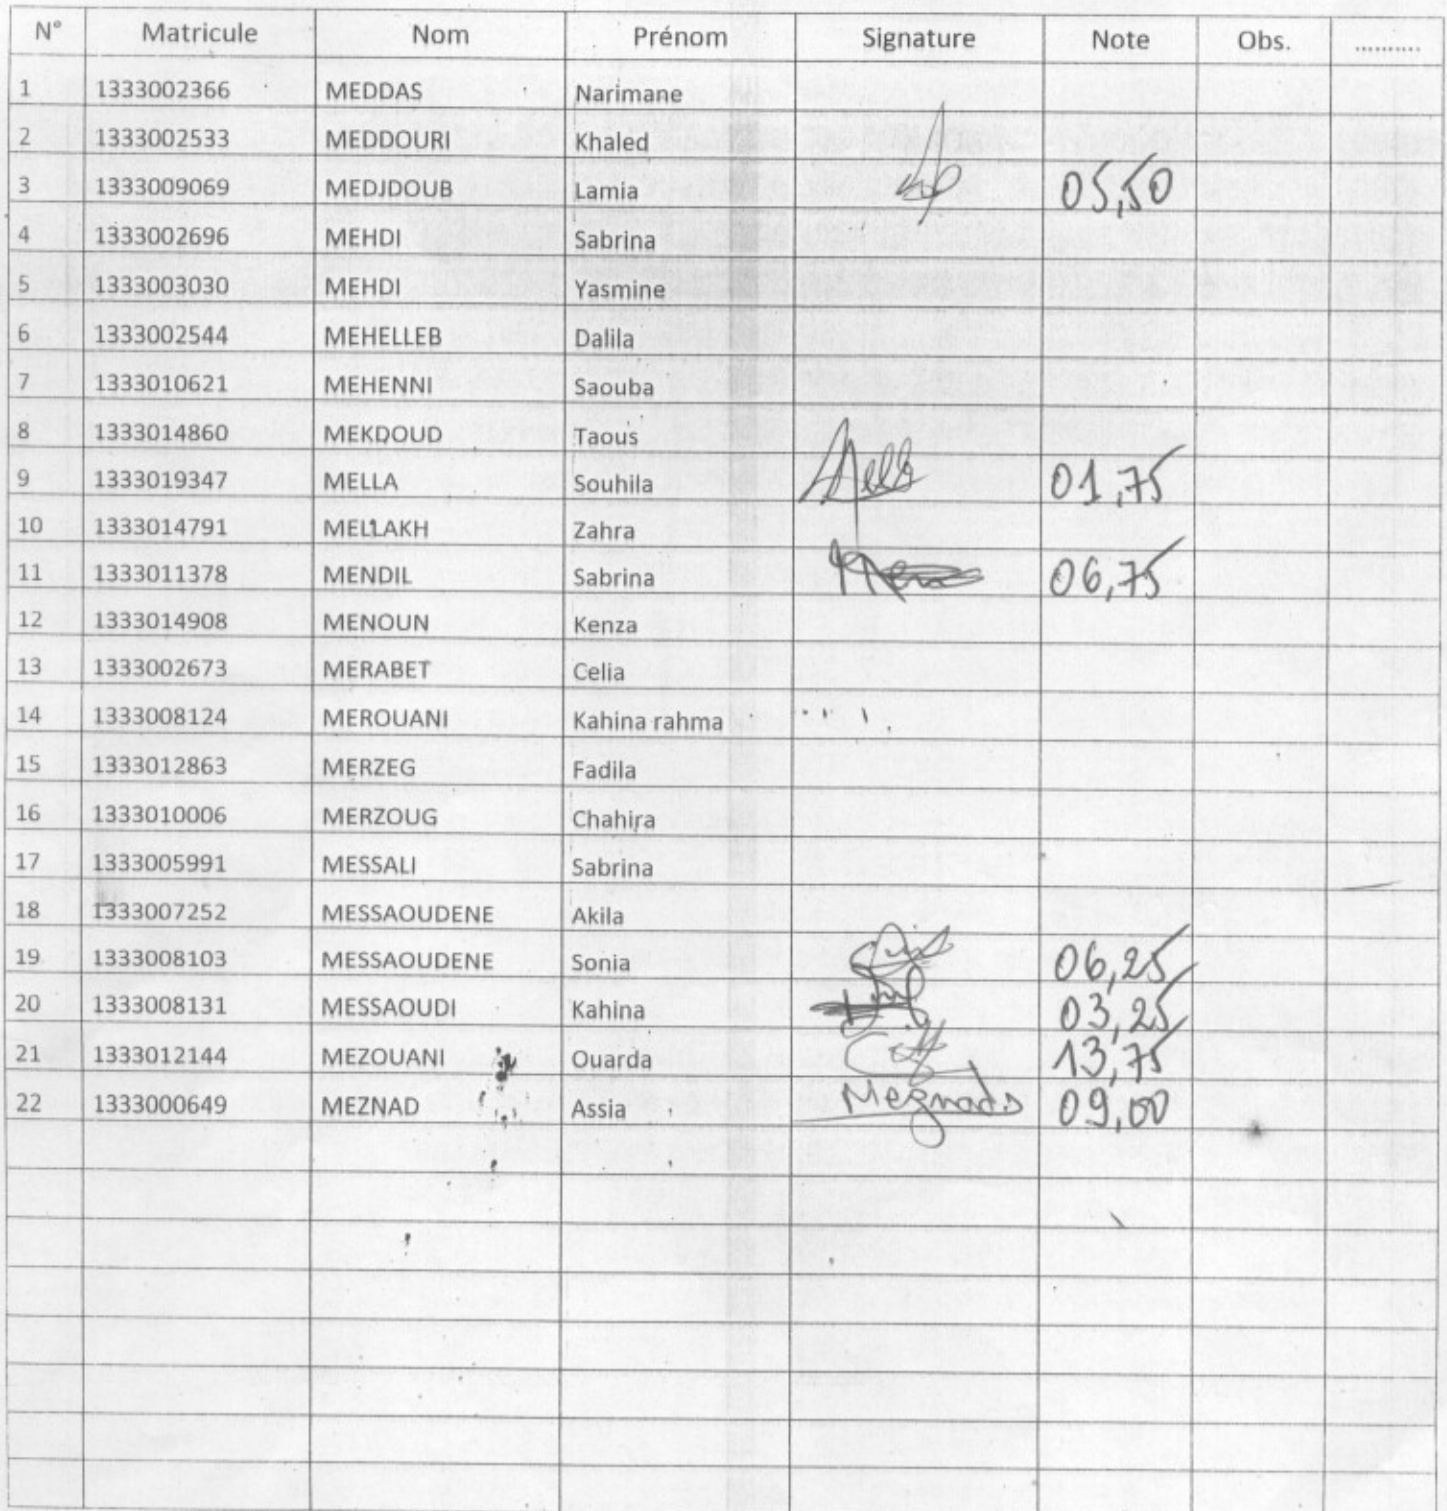 N° Matricule Nom Prénom Signature Note Obs. ...........
1 1333002366 MEDDAS Narimane
2 1333002533 MEDDOURI Khaled
3 1333009069 MEDJDOUB Lamia 05,50
4 1333002696 MEHDI Sabrina
5 1333003030 MEHDI Yasmine
6 1333002544 MEHELLEB Dalila
7 1333010621 MEHENNI Saouba
8 1333014860 MEKDOUD Taous
9 1333019347 MELLA Souhila 01,75
10 1333014791 MELLAKH Zahra
11 1333011378 MENDIL Sabrina 06,75
12 1333014908 MENOUN Kenza
13 1333002673 MERABET Celia
14 1333008124 MEROUANI Kahina rahma
15 1333012863 MERZEG Fadila
16 1333010006 MERZOUG Chahira
17 1333005991 MESSALI Sabrina
18 1333007252 MESSAOUDENE Akila
19 1333008103 MESSAOUDENE Sonia 06,25
20 1333008131 MESSAOUDI Kahina 03,25
21 1333012144 MEZOUANI Ouarda 13,75
22 1333000649 MEZNAD Assia 09,00